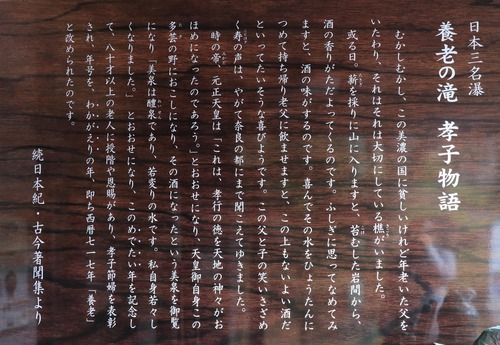 日本三名瀑
養老の滝 孝子物語
むかしむかし、この美濃の国に貧しいけれど年老いた父を
いたわり、それはそれは大切にしている樵がいました。
或る日。薪を採りに山に入りますと、苔むした岩間から、
酒の香りがただよってくるのです。ふしぎに思ってなめてみ
ますと、酒の味がするのです。喜んでその水をひょうたんに
つめて持ち帰り老父に飲ませますと、この上もないよい酒だ
といってたいそうな喜びようです。この父と子の笑いさざめ
く寿の声は、やがて奈良の都にまで聞こえてゆきました。
時の帝、元正天皇は「これは、孝行の徳を天地の神々がお
ほめになったのであろう。」とおおせになり、天皇御自身この
多芸の野におこしになり、その酒になったという美泉を御覧
になり「美泉は醴泉であり、若変りの水です。私自身若々し
くなりました。」とおおせになり、このめでたい年を記念し
て、八十才以上の老人に授階や恩賜があり、孝子節婦を表彰
され、年号を、わかがえりの年、即ち西暦七一七年「養老」
と改められたのです。
続日本紀・古今著聞集より